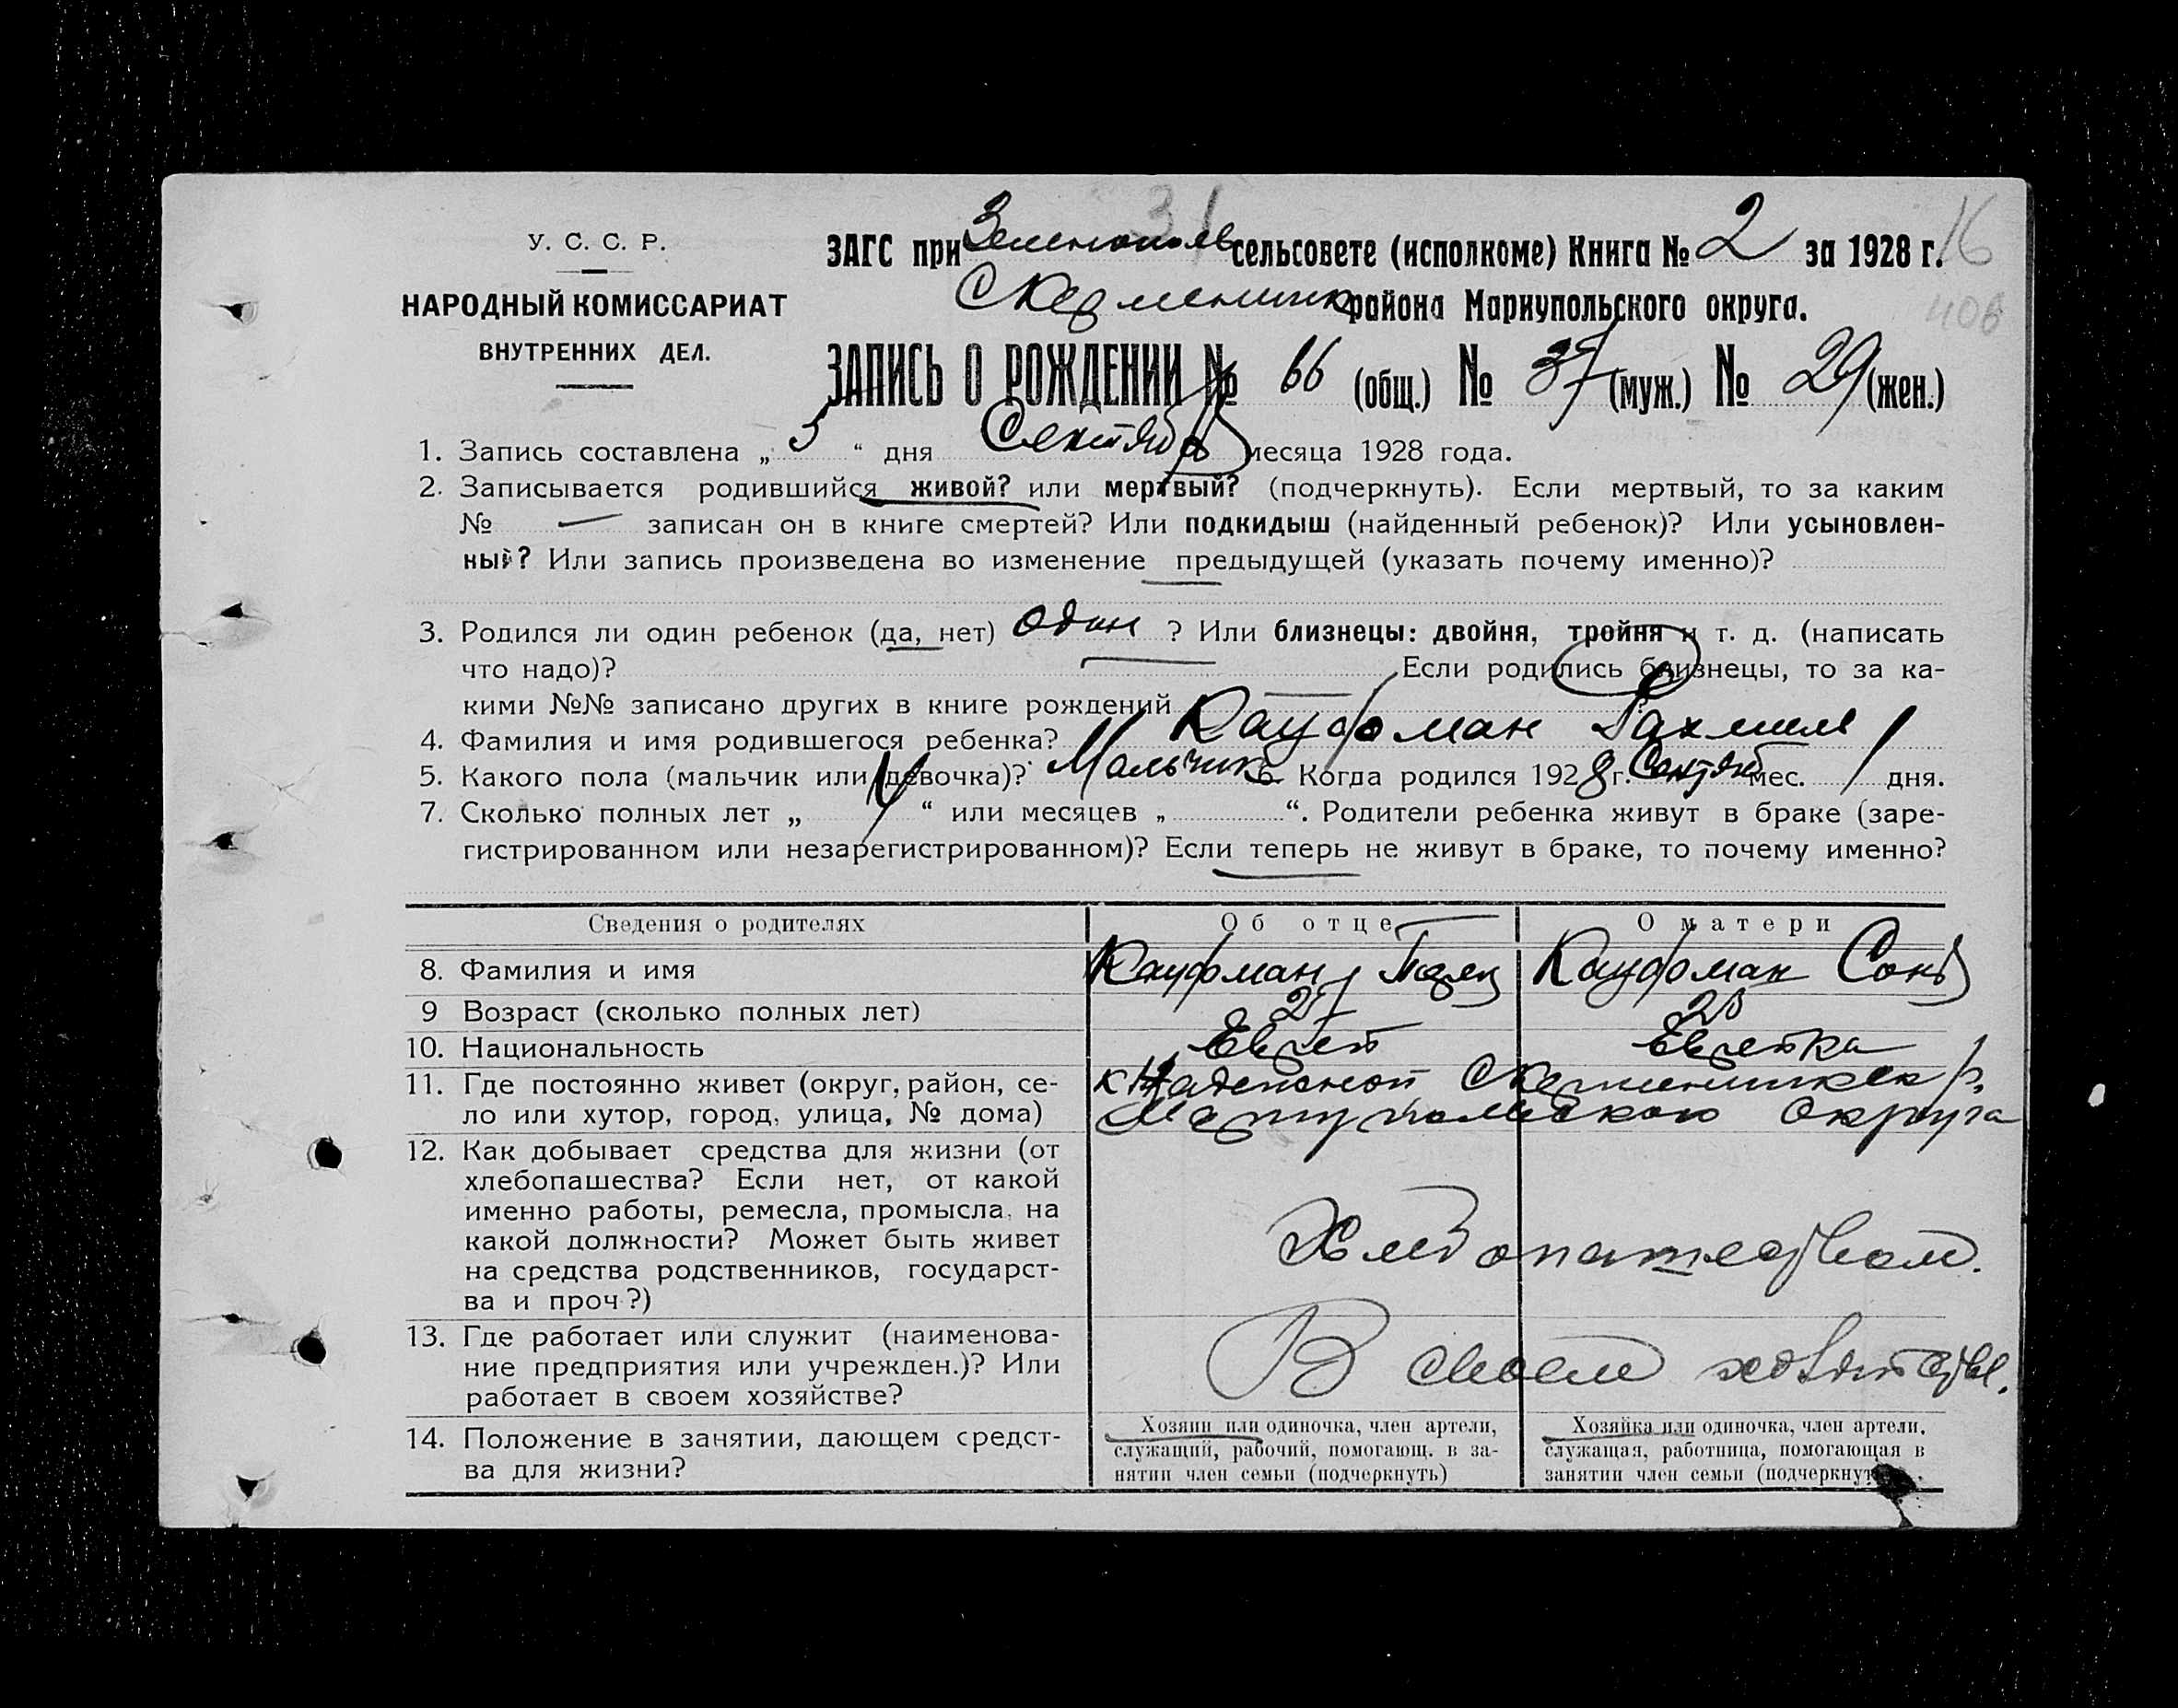 31
У. С. С. Р.
НАРОДНЫЙ КОМИССАРИАТ
ВНУТРЕННИХ ДЕЛ.
ЗАГС при Зеленополев сельсовете (исполкоме) Книга № 2 за 1928 г. 16
района Мариупольского округа.
406
ЗАПИСЬ О РОЖДЕНИИ № 66 (общ.) № 37 (муж.) № 29 (жен.)
1. Запись составлена „ 5 “ дня Сентября месяца 1928 года.
2. Записывается родившийся живой? или мертвый? (подчеркнуть). Если мертвый, то за каким
№ — записан он в книге смертей? Или подкидыш (найденный ребенок)? Или усыновлен-
ный? Или запись произведена во изменение предыдущей (указать почему именно)?
3. Родился ли один ребенок (да, нет) один ? Или близнецы: двойня, тройня и т. д. (написать
что надо)? — Если родились близнецы, то за ка-
кими №№ записано других в книге рождений —
4. Фамилия и имя родившегося ребенка? Кауфман Рахмиль
5. Какого пола (мальчик или девочка)? Мальчик 6. Когда родился 1928 г. Сентяб мес. 1 дня.
7. Сколько полных лет „ 4 “ или месяцев „ “. Родители ребенка живут в браке (заре-
гистрированном или незарегистрированном)? Если теперь не живут в браке, то почему именно?
Сведения о родителях Об отце О матери
8. Фамилия и имя Кауфман Кауфман Соня
9 Возраст (сколько полных лет) 27 28
10. Национальность Еврей Еврейка
11. Где постоянно живет (округ, район, се-
ло или хутор, город, улица, № дома)
Мариупольского округа
12. Как добывает средства для жизни (от
хлебопашества? Если нет, от какой
именно работы, ремесла, промысла, на
какой должности? Может быть живет
на средства родственников, государст-
ва и проч?)
Хлебопашеством.
13. Где работает или служит (наименова-
ние предприятия или учрежден.)? Или
работает в своем хозяйстве?
В своем хозяйстве.
14. Положение в занятии, дающем средст-
ва для жизни?
Хозяин или одиночка, член артели,
служащий, рабочий, помогающ. в за-
нятии член семьи (подчеркнуть)
Хозяйка или одиночка, член артели,
служащая, работница, помогающая в
занятии член семьи (подчеркнуть